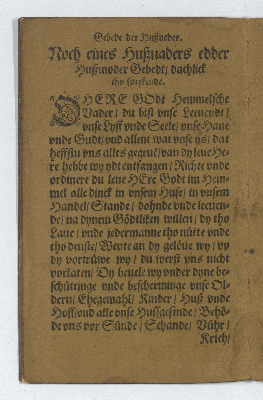 Gebede der Hußueder.
Noch eines Hußuaders edder
Hußmoder Gebedt / dachlick
tho sprekende.
OHERE GOdt Hemmelsche
Vader / du bist vnse Leuendt /
vnse Lyff vnde Seele / vnse Haue
vnde Gudt / vnd allent wat vnse ys / dat
heffstu vns alles gegeuē / van dy leue He-
re hebbe wy ydt entfangen / Richte vnde
ordinere du leue HEre Godt im Hem-
mel alle dinck in vnsem Huse / in vnsem
Handel / Stande / dohnde vnde leuen-
de / na dynem Gödtliken willen / dy tho
Laue / vnde jedermanne tho nütte vnde
tho denste / Wente an dy gelöue wy / vp
dy vortrüwe wy / du werst vns nicht
vorlaten / Dy beuele wy vnder dyne be-
schüttinge vnde bescherminge vnse Ol-
dern / Ehegemahl / Kinder / Huß vnde
Hoff / vnd alle vnse Hußgesinde / Behö-
de vns vor Sünde / Schande / Vühr /
Krich /